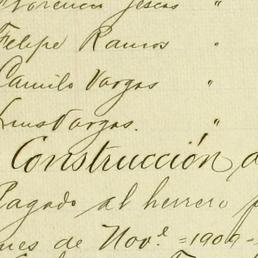 Florencio Yescas "
Felipe Ramos "
Camilo Vargas "
Luis Vargas. "
Construcción d
Pagado al herrero p
mes de Nov.e = 1909 =